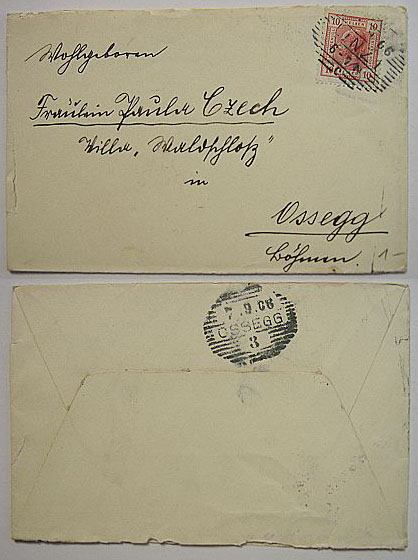 10 10
Wohlgeboren
Fräulein Paula Czech
Villa „Waldschloß"
in
Ossegg
Böhmen.
1-
9.06
OSSEGG
3